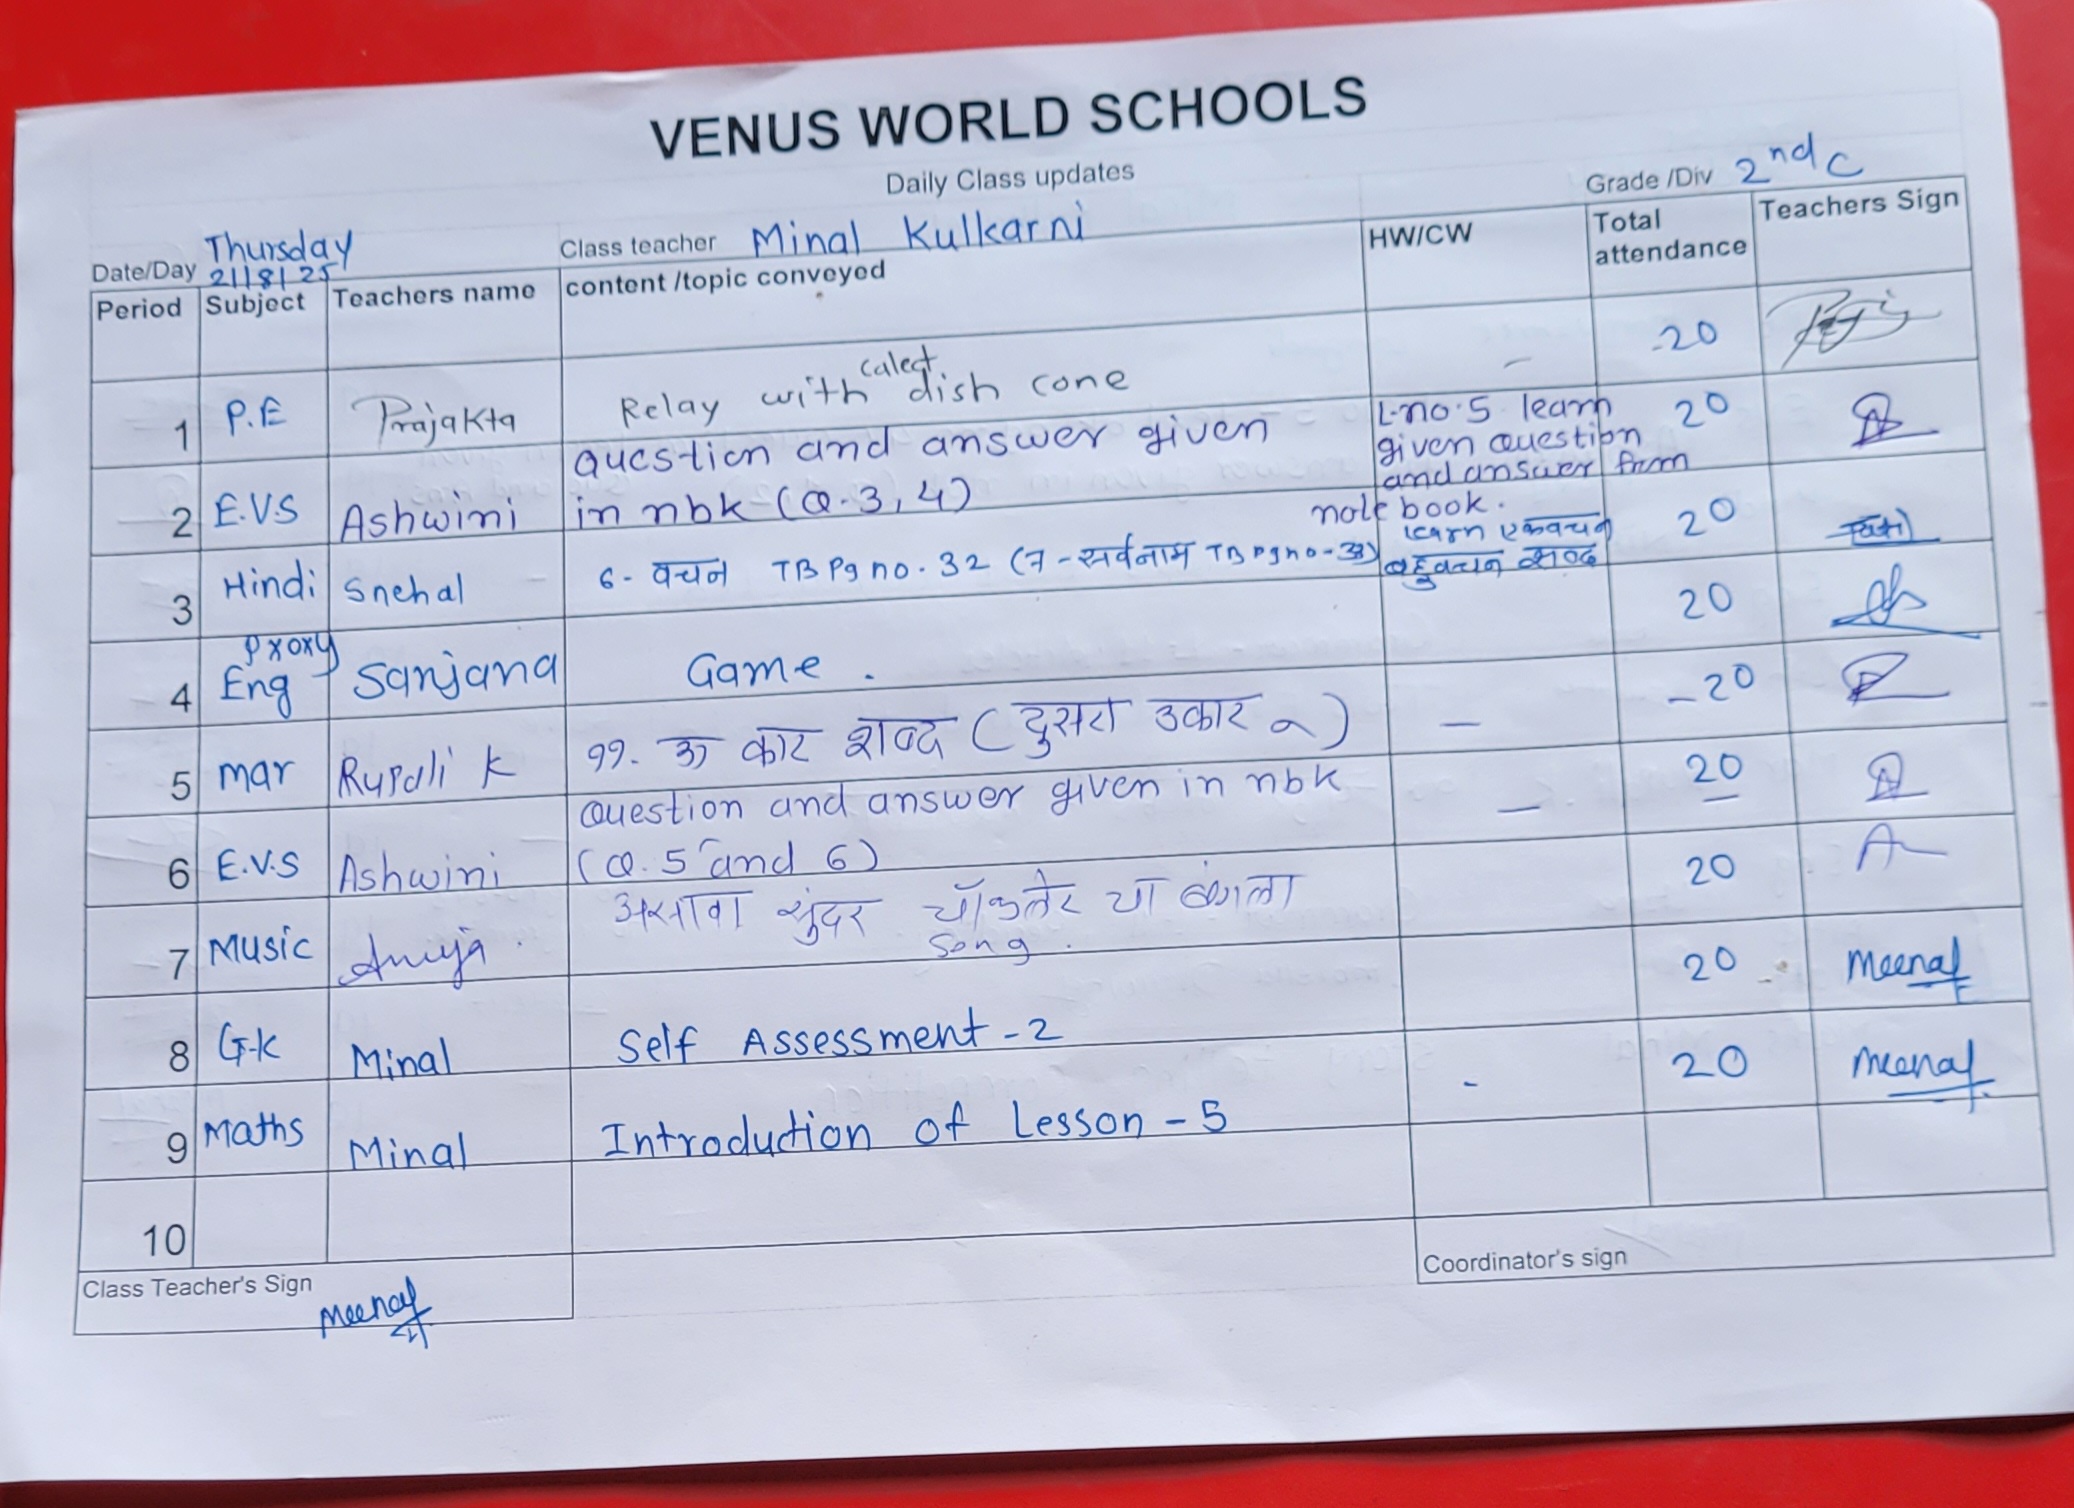 VENUS WORLD SCHOOLS
Daily Class updates
Grade /Div 2nd C
Date/Day Thursday 21/8/25 Class teacher Minal Kulkarni
Period Subject Teachers name content /topic conveyed HW/CW Total attendance Teachers Sign
1 P.E Prajakta Relay with calect dish cone - 20
2 E.V.S Ashwini question and answer given
in nbk (Q.3,4) L.no.5 learn
given question
and answer from
note book. 20
3 Hindi Snehal 6- वचन TB Pg no. 32 (7-सर्वनाम TB Pg no-33) learn एकवचन
बहुवचन शब्द 20
4 Eng Proxy Sanjana Game. 20
5 Mar Rupali K ११. ऊ कार शब्द (दुसरा उकार ू) - 20
6 E.V.S Ashwini Question and answer given in nbk
(Q.5 and 6) - 20
7 Music Anuja असावा सुंदर चॉकलेट चा बंगला
song. 20
8 G.K Minal Self Assessment-2 20 Meenal
9 Maths Minal Introduction of Lesson-5 - 20 Meenal
10
Class Teacher's Sign Meenal
Coordinator's sign